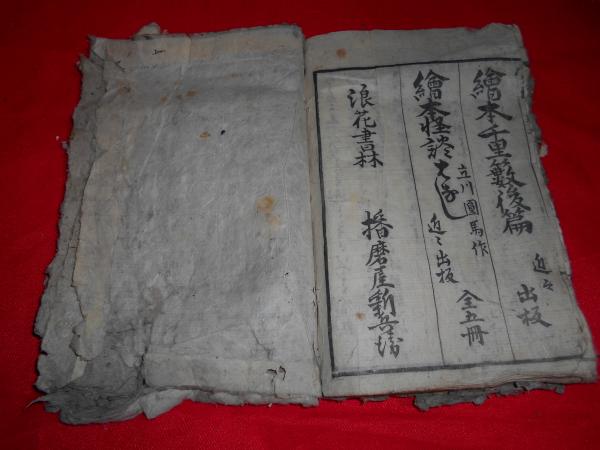 繪本千里藪後篇 近々出板
繪本怪談はなし 立川圓馬作 近々出板 全五冊
浪花書林 播磨屋新兵衛